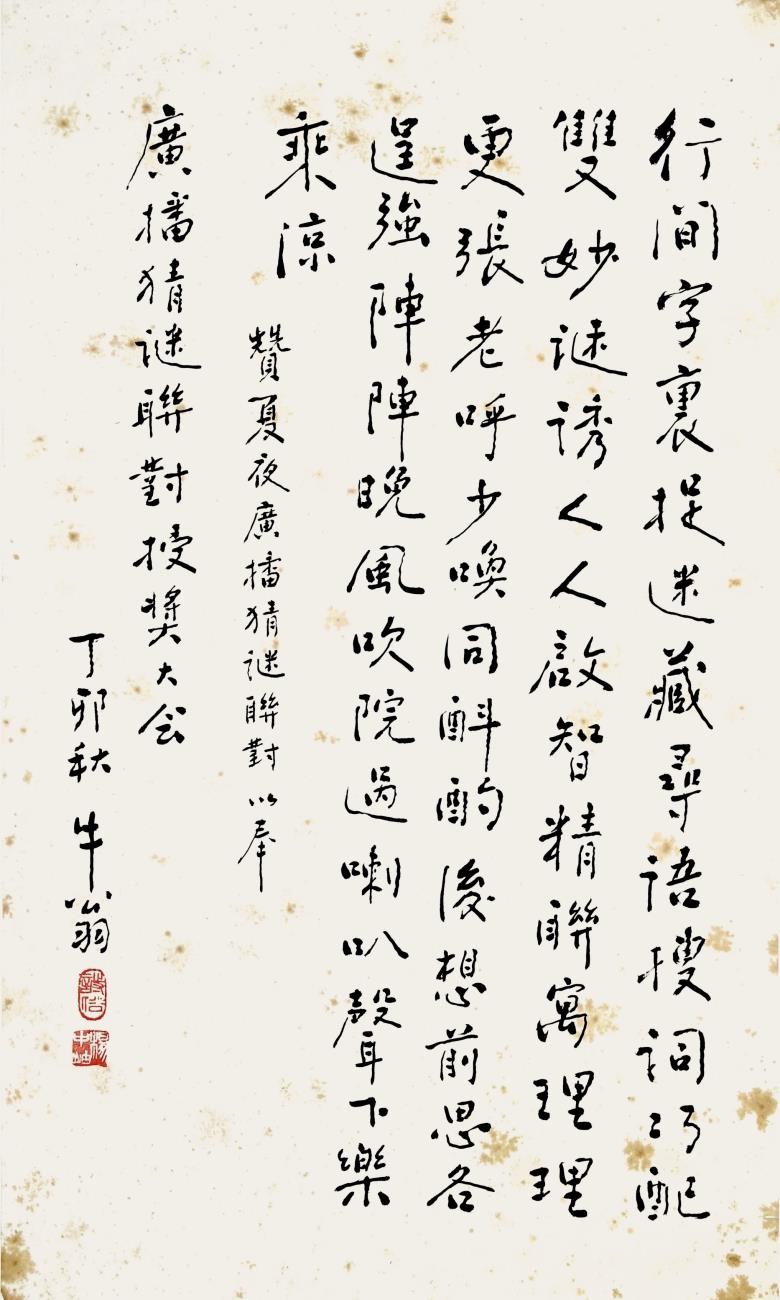 行間字裏捉迷藏尋語搜詞巧配
雙妙謎誘人人啟智精聯寓理理
更張老呼少喚同斟酌後想前思各
逞強陣陣晚風吹院過喇叭聲下樂
乘涼
贊夏夜廣播猜謎聯對以奉
廣播猜謎聯對授獎大會
丁卯秋牛翁